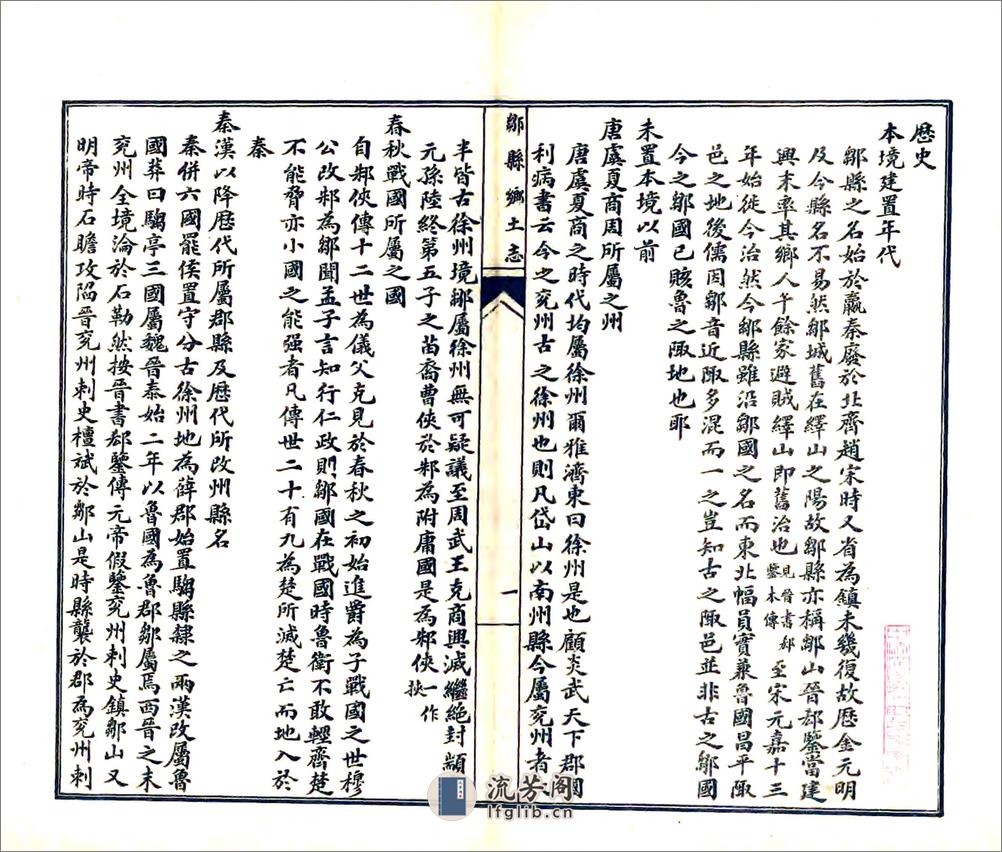 歷史
本境建置年代
鄒縣之名始於嬴秦廢於北齊趙宋時又省為鎮未幾復故歷金元明
及今縣名不易然鄒城舊在繹山之陽故鄒縣亦稱鄒山晉郄鑒當建
興末率其鄉人千餘家避賊繹山即舊治也見晉書郄鑒本傳至宋元嘉十三
年始徙今治然今鄒縣雖沿鄒國之名而東北幅員實兼魯國昌平陬
邑之地後儒因鄒音近陬多混而一之豈知古之陬邑並非古之鄒國
今之鄒國已賅魯之陬地也耶
未置本境以前
唐虞夏商周所屬之州
唐虞夏商之時代均屬徐州爾雅濟東曰徐州是也顧炎武天下郡國
利病書云今之兗州古之徐州也則凡岱山以南州縣今屬兗州者大
鄒縣鄉土志
一
半皆古徐州境鄒屬徐州無可疑議至周武王克商興滅繼絕封顓
元孫陸終第五子之苗裔曹俠於邾為附庸國是為邾俠一作挾
春秋戰國所屬之國
自邾俠傳十二世為儀父克見於春秋之初始進爵為子戰國之世穆
公改邾為鄒聞孟子言知行仁政則鄒國在戰國時魯衛不敢輕齊楚
不能脅亦小國之能强者凡傳世二十有九為楚所滅楚亡而地入於
秦
秦漢以降歷代所屬郡縣及歷代所改州縣名
秦併六國罷侯置守分古徐州地為薛郡始置騶縣隸之兩漢改屬魯
國莽曰騶亭三國屬魏晉泰始二年以魯國為魯郡鄒屬焉西晉之末
兗州全境淪於石勒然按晉書郄鑒傳元帝假鑒兗州刺史鎮鄒山又
明帝時石瞻攻陷晉兗州刺史檀斌於鄒山是時縣襲於郡為兗州刺
流芳阁
lfglib.cn